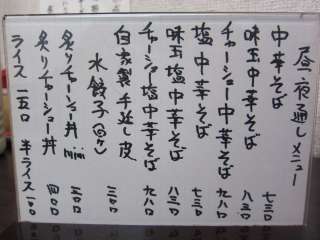 昼夜通しメニュー
中華そば 七三〇
味玉中華そば 八三〇
チャーシュー中華そば 九八〇
塩中華そば 七三〇
味玉塩中華そば 八三〇
チャーシュー塩中華そば 九八〇
自家製手延し皮
水餃子(6ヶ) 三〇〇
炙りチャーシュー丼mini 三〇〇
炙りチャーシュー丼 四〇〇
ライス 一五〇 半ライス 一〇〇